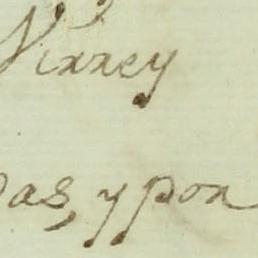 Virrey
das, y pon